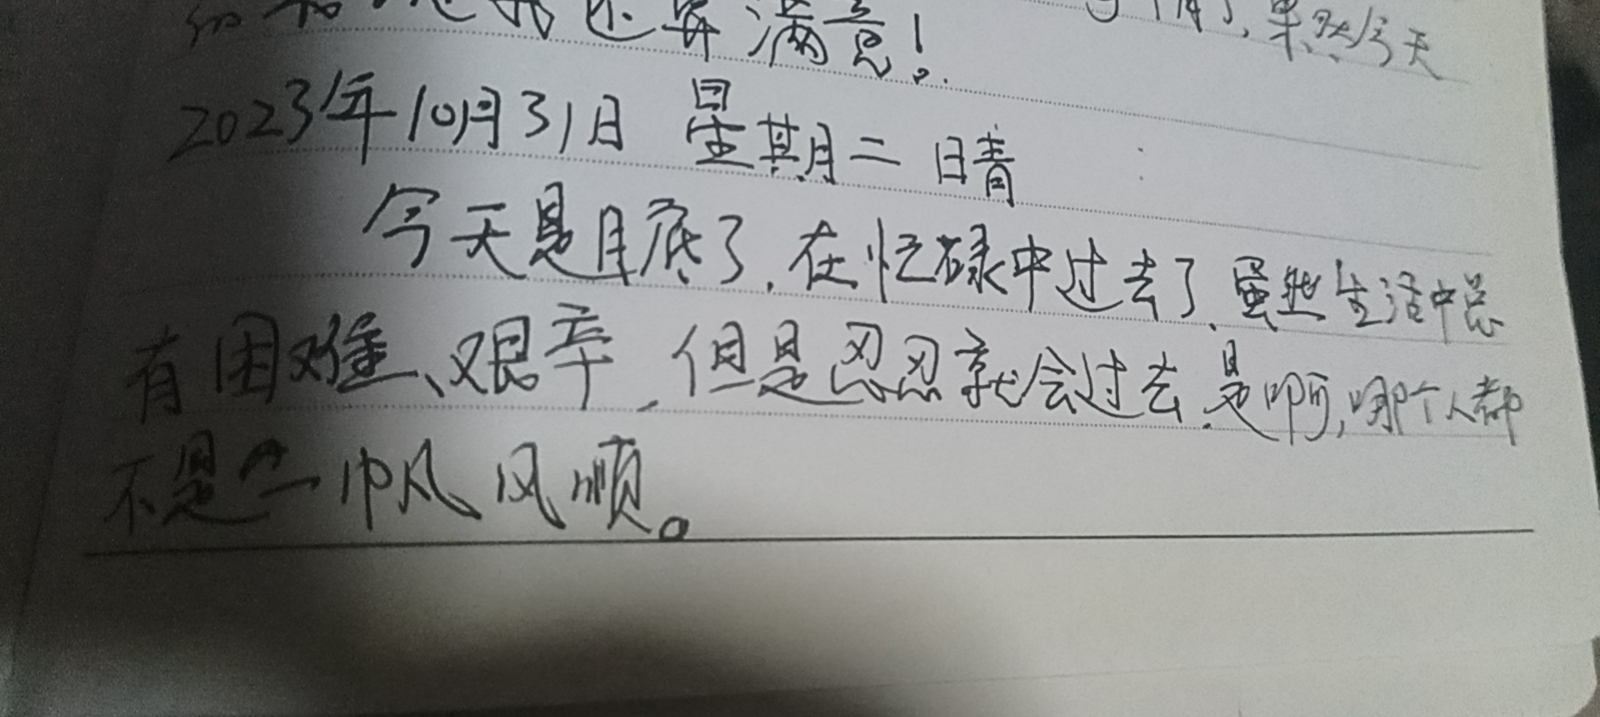 了，果然今天
我还算满意！
2023年10月31日 星期二 晴
今天是月底了，在忙碌中过去了，虽然生活中总
有困难、艰辛，但是忍忍就会过去，是啊，哪个人都
不是一帆风顺。